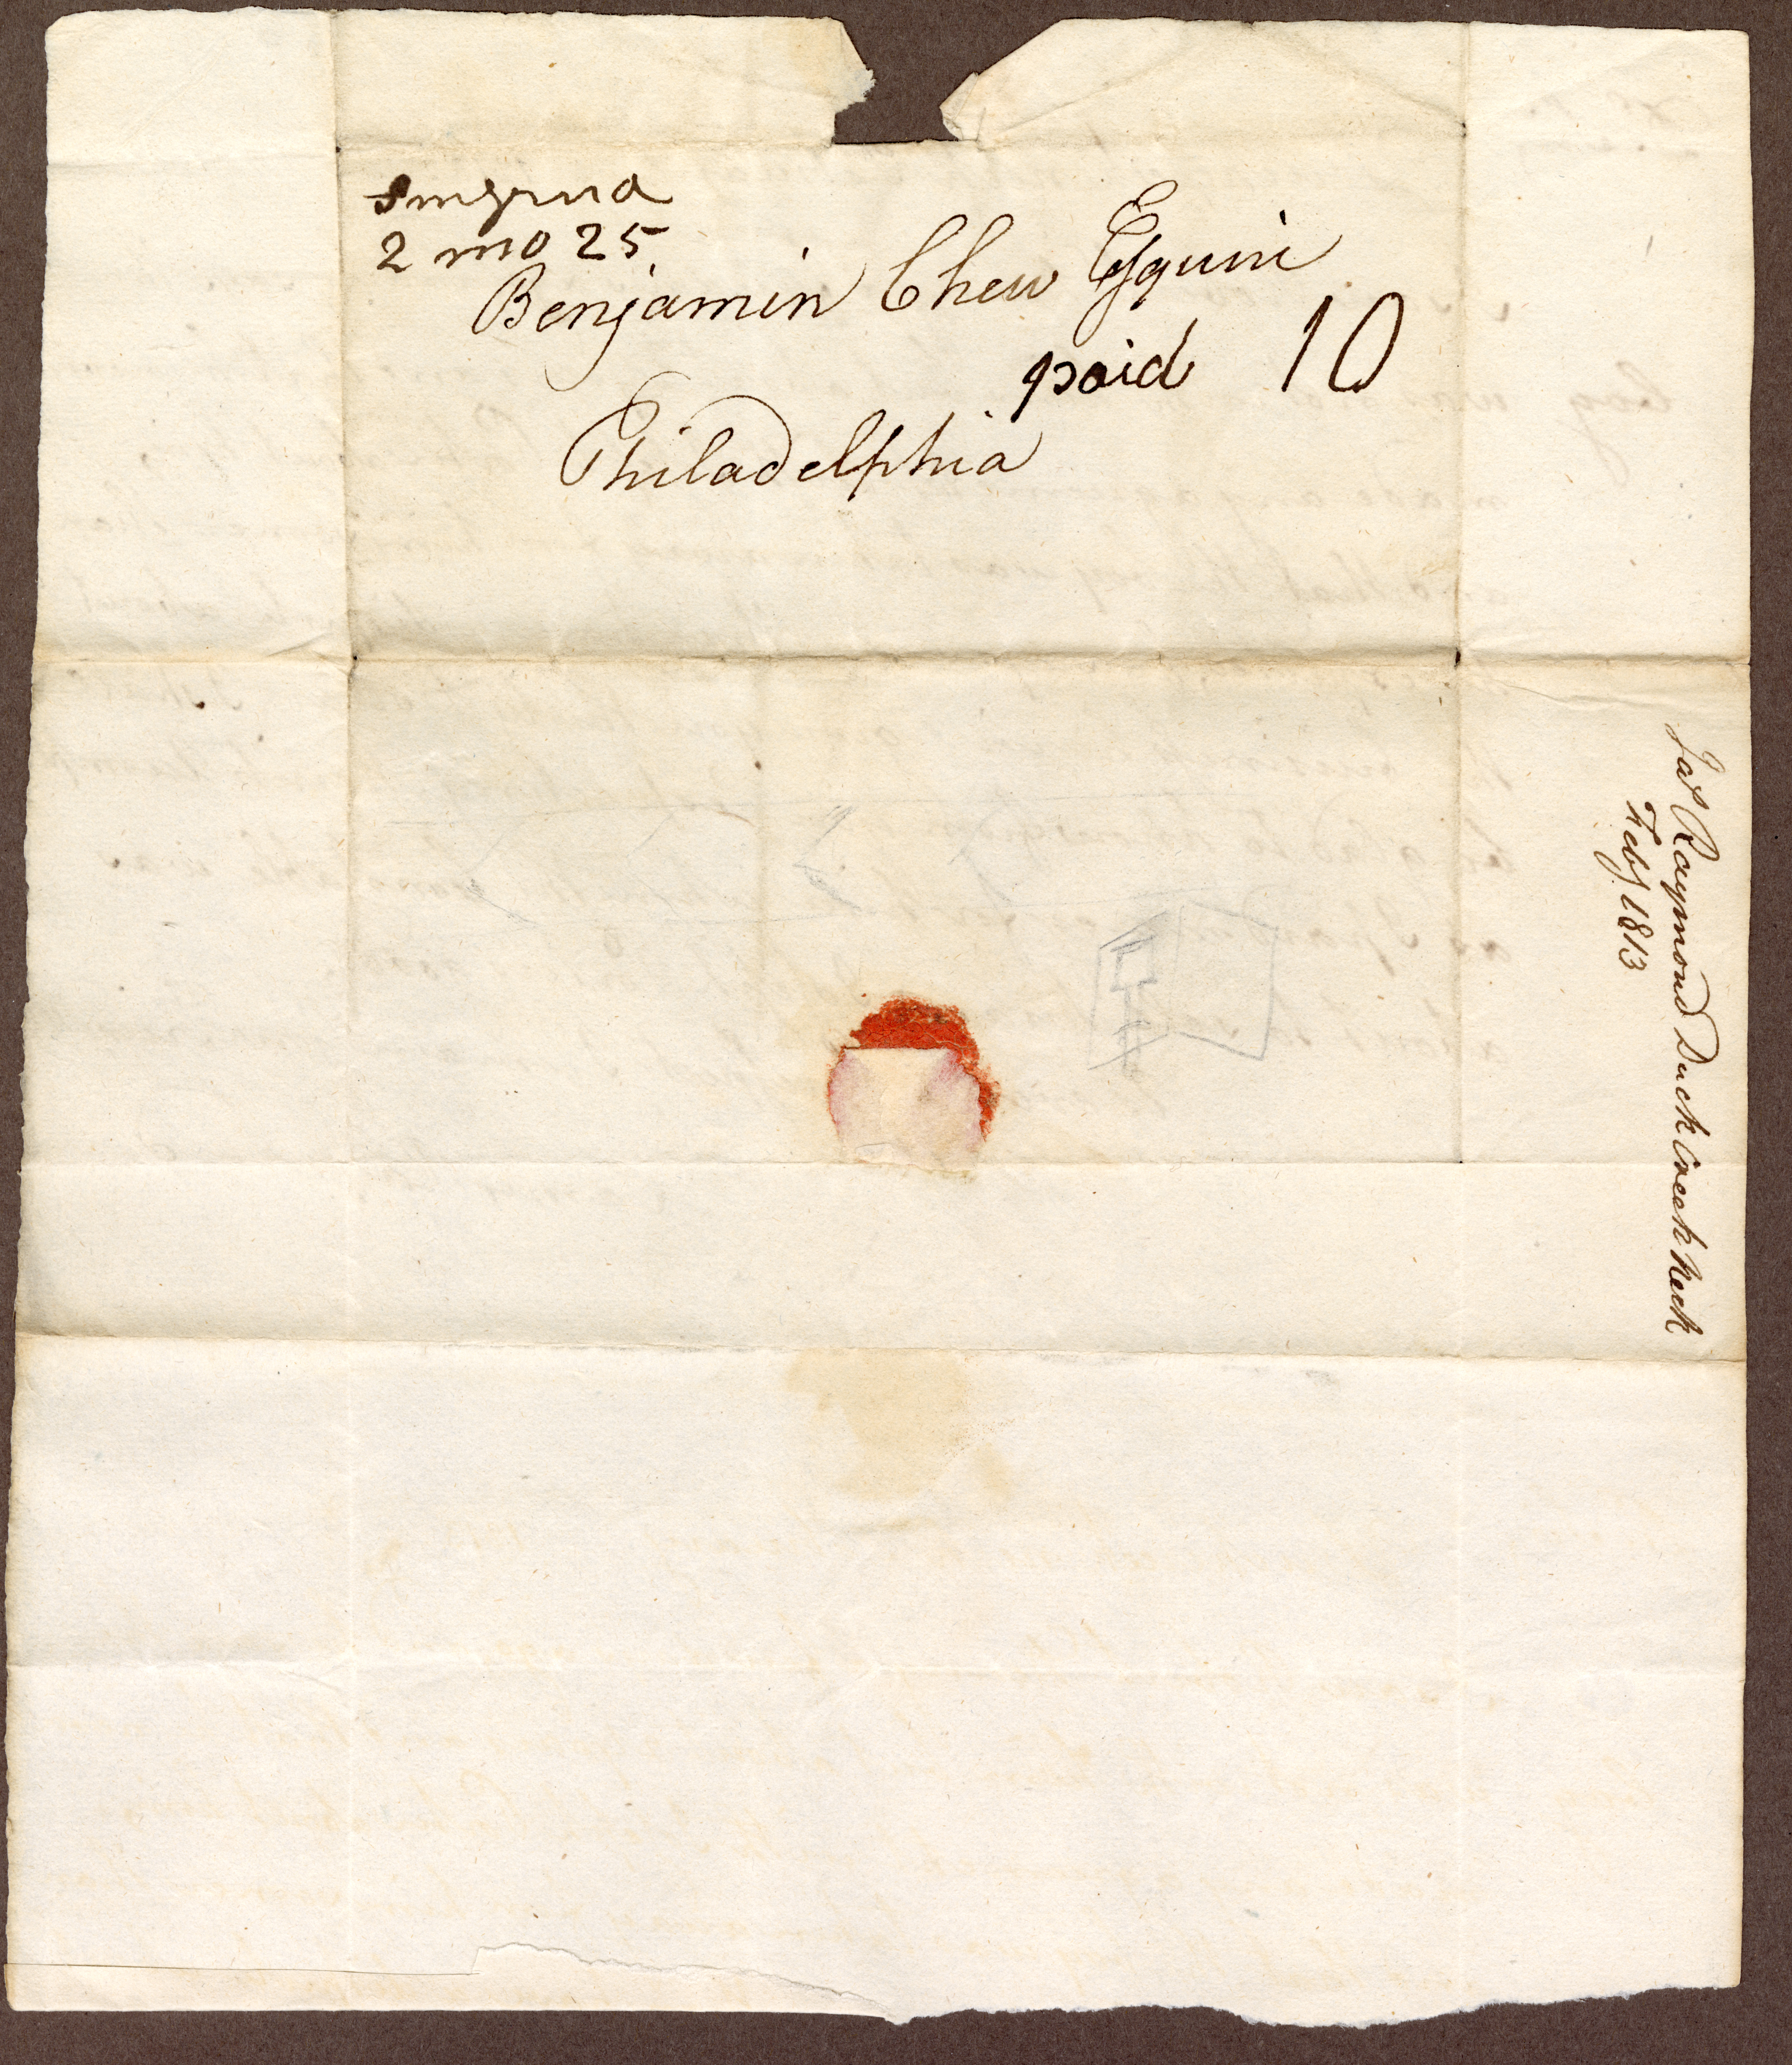 Smyrna
2 mo 25
Benjamin Chew Esquire
paid 10
Philadelphia
Jas Raymond Duck Creek Neck
Feby 1813